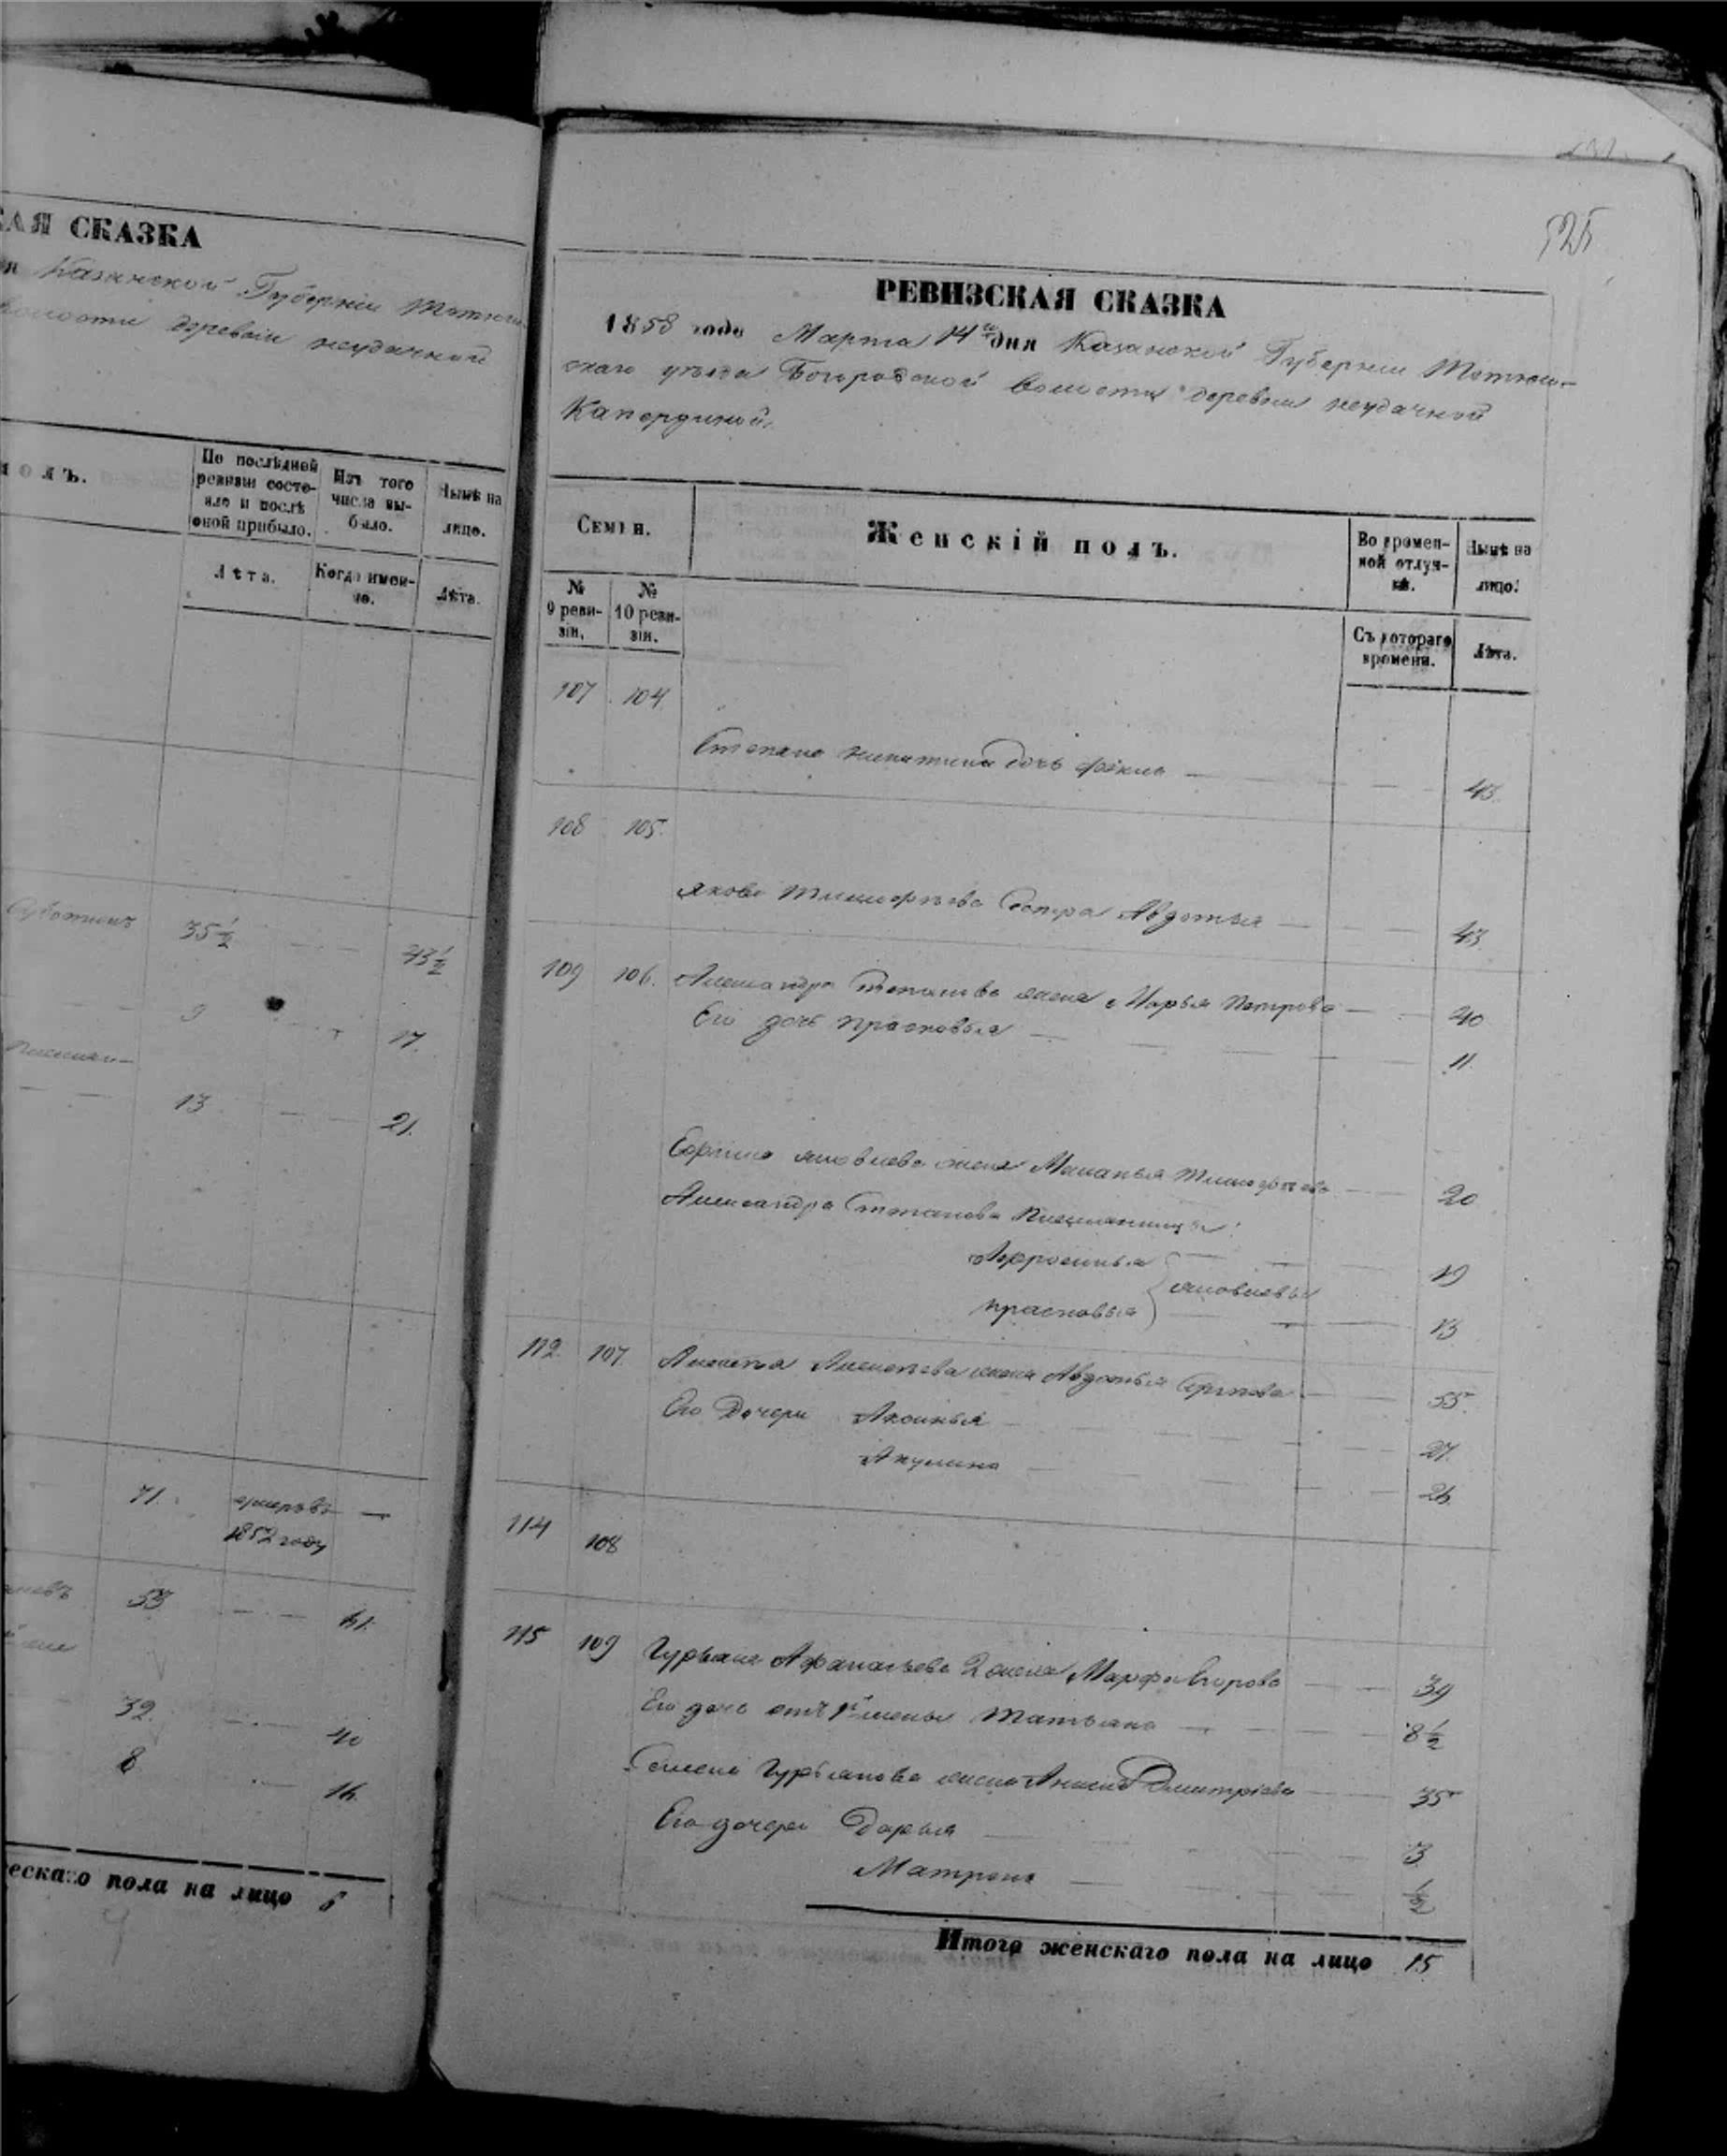 КАЯ СКАЗКА
Казанской Губернии Тетюш-
волости деревни неудачной
полъ.
По послѣдней ревизіи состояло и послѣ оной прибыло.
Изъ того числа выбыло.
Нынѣ на лицо.
Лѣта.
Когда именно.
Лѣта.
35½ 43½
9 17.
13 21.
71. умеръ въ 1852 году
53 61.
32. 40
8 16.
ескаго пола на лицо 6
525
РЕВИЗСКАЯ СКАЗКА
1858 года Марта 14го дня Казанской Губернии Тетюш-
скаго уѣзда Богородской волости деревни неудачной
Капердиной.
Семьи.
Женскій полъ.
Во времен-
ной отлуч-
кѣ.
Нынѣ на
лицо.
№
9 реви-
зіи.
№
10 реви-
зіи.
Съ котораго
времени.
Лѣта.
107 104
Степана никитина дочь фекла 43.
108 105.
якова тимофѣева Сестра Авдотья 43.
109 106. Александра Степанова жена Марья петрова 40
Его дочь прасковья 11.
яковлева жена Маланья тимофѣева 20
Александра Степанова племянницы
Афросинья 19
яковлевы
прасковья 13
112. 107. Алексѣя Алексѣева жена Авдотья 55.
Его Дочери Аксинья 27.
Акулина 26.
114 108
115 109 Гурьяна Афанасьева 2 жена Марфа Егорова 39
Его дочь отъ 1й жены татьяна 8½
Семена Гурьянова жена Анисья Дмитріева 35
Его дочери Дарья 3
Матрена ½
Итого женскаго пола на лицо 15